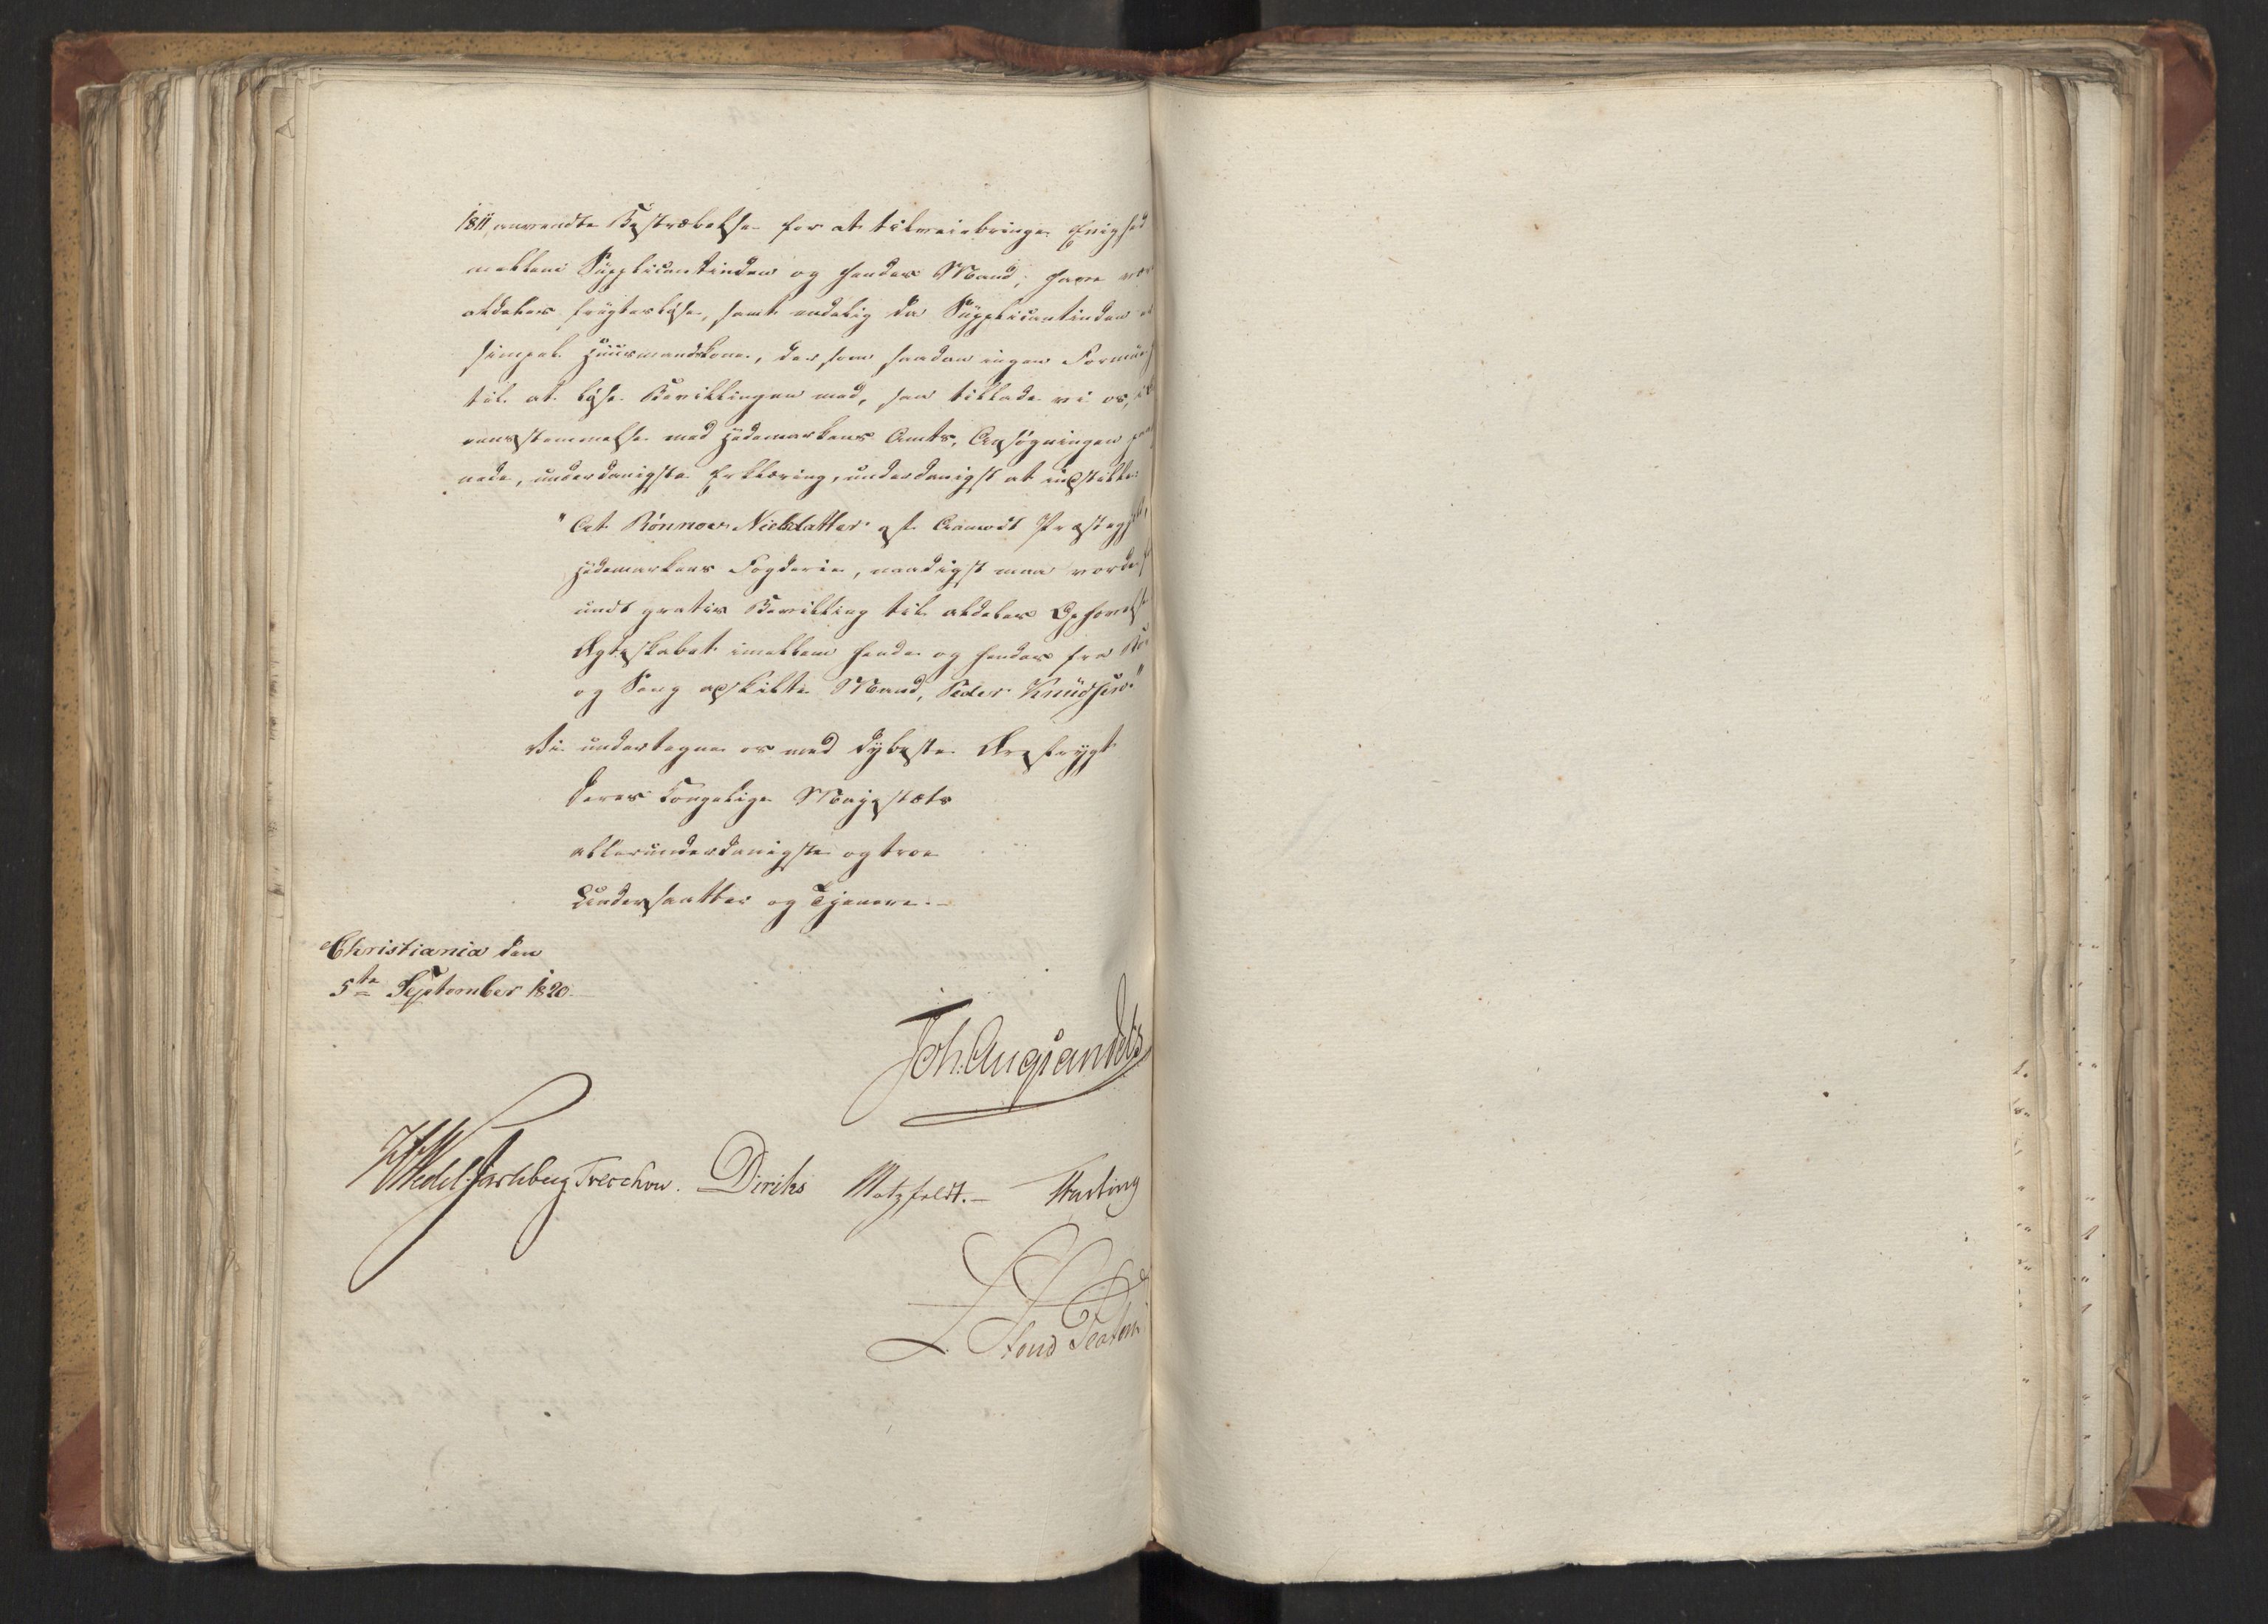 1811, anvendte Bestræbelse for at tilveiebringe Enighed
mellem Supplicantinden og hendes Mand, have
aldeles frugtesløse, samt endelig da Supplicantinden
simpel Huusmandskone, der, som saadan ingen
til at løse Bevillingen med, saa tillade vi os,
eensstemmelse med Hedemarkens Amts, Ansøgningen
nede, underdanigste Erklæring, underdanigst at indstille:
"At Rønnov Nielsdatter af Aamodt Præstegjeld,
Hedemarkens Fogderie, naadigst maa vorde
undt gratis Bevilling til aldeles Ophævelse
Ægteskabet imellem hende og hendes fra
og Seng afskilte Mand, Peder Knudsen."
Vi undertegne os med dybeste Ærefrygt
Deres Kongelige Majestæts
allerunderdanigste og troe
Undersaatter og Tjenere.-
Christiania den
5te September 1820.
Joh. Aug. Sandels
Wedel-Jarlsberg Treschow. Diriks Motzfeldt.- Fasting
L. Stoud Platou